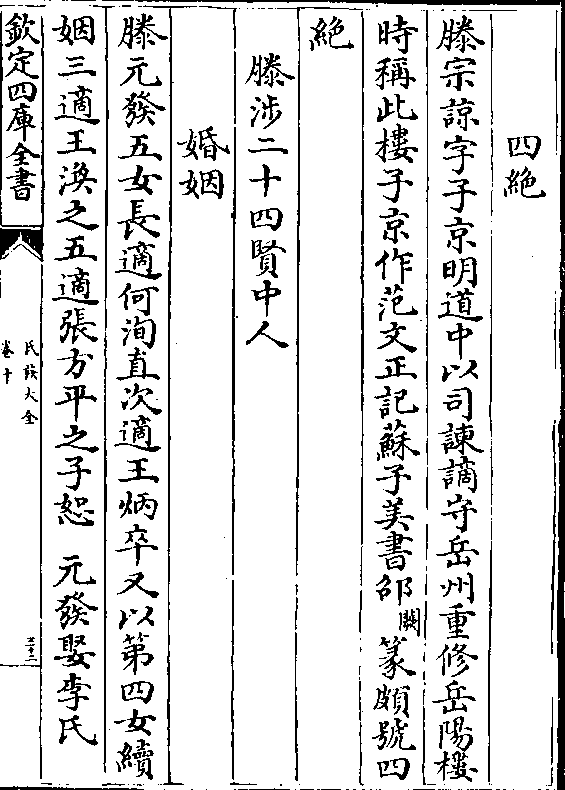 四絶
滕宗諒字子京明道中以司諫謫守岳州重修岳陽樓
時稱此樓子京作范文正記蘇子美書邵闕篆頗號四
絶
滕涉二十四賢中人
婚姻
滕元發五女長適何洵直次適王炳卒又以第四女續
姻三適王渙之五適張方平之子恕 元發娶李氏
欽定四庫全書
氏族大全
卷十
三十二